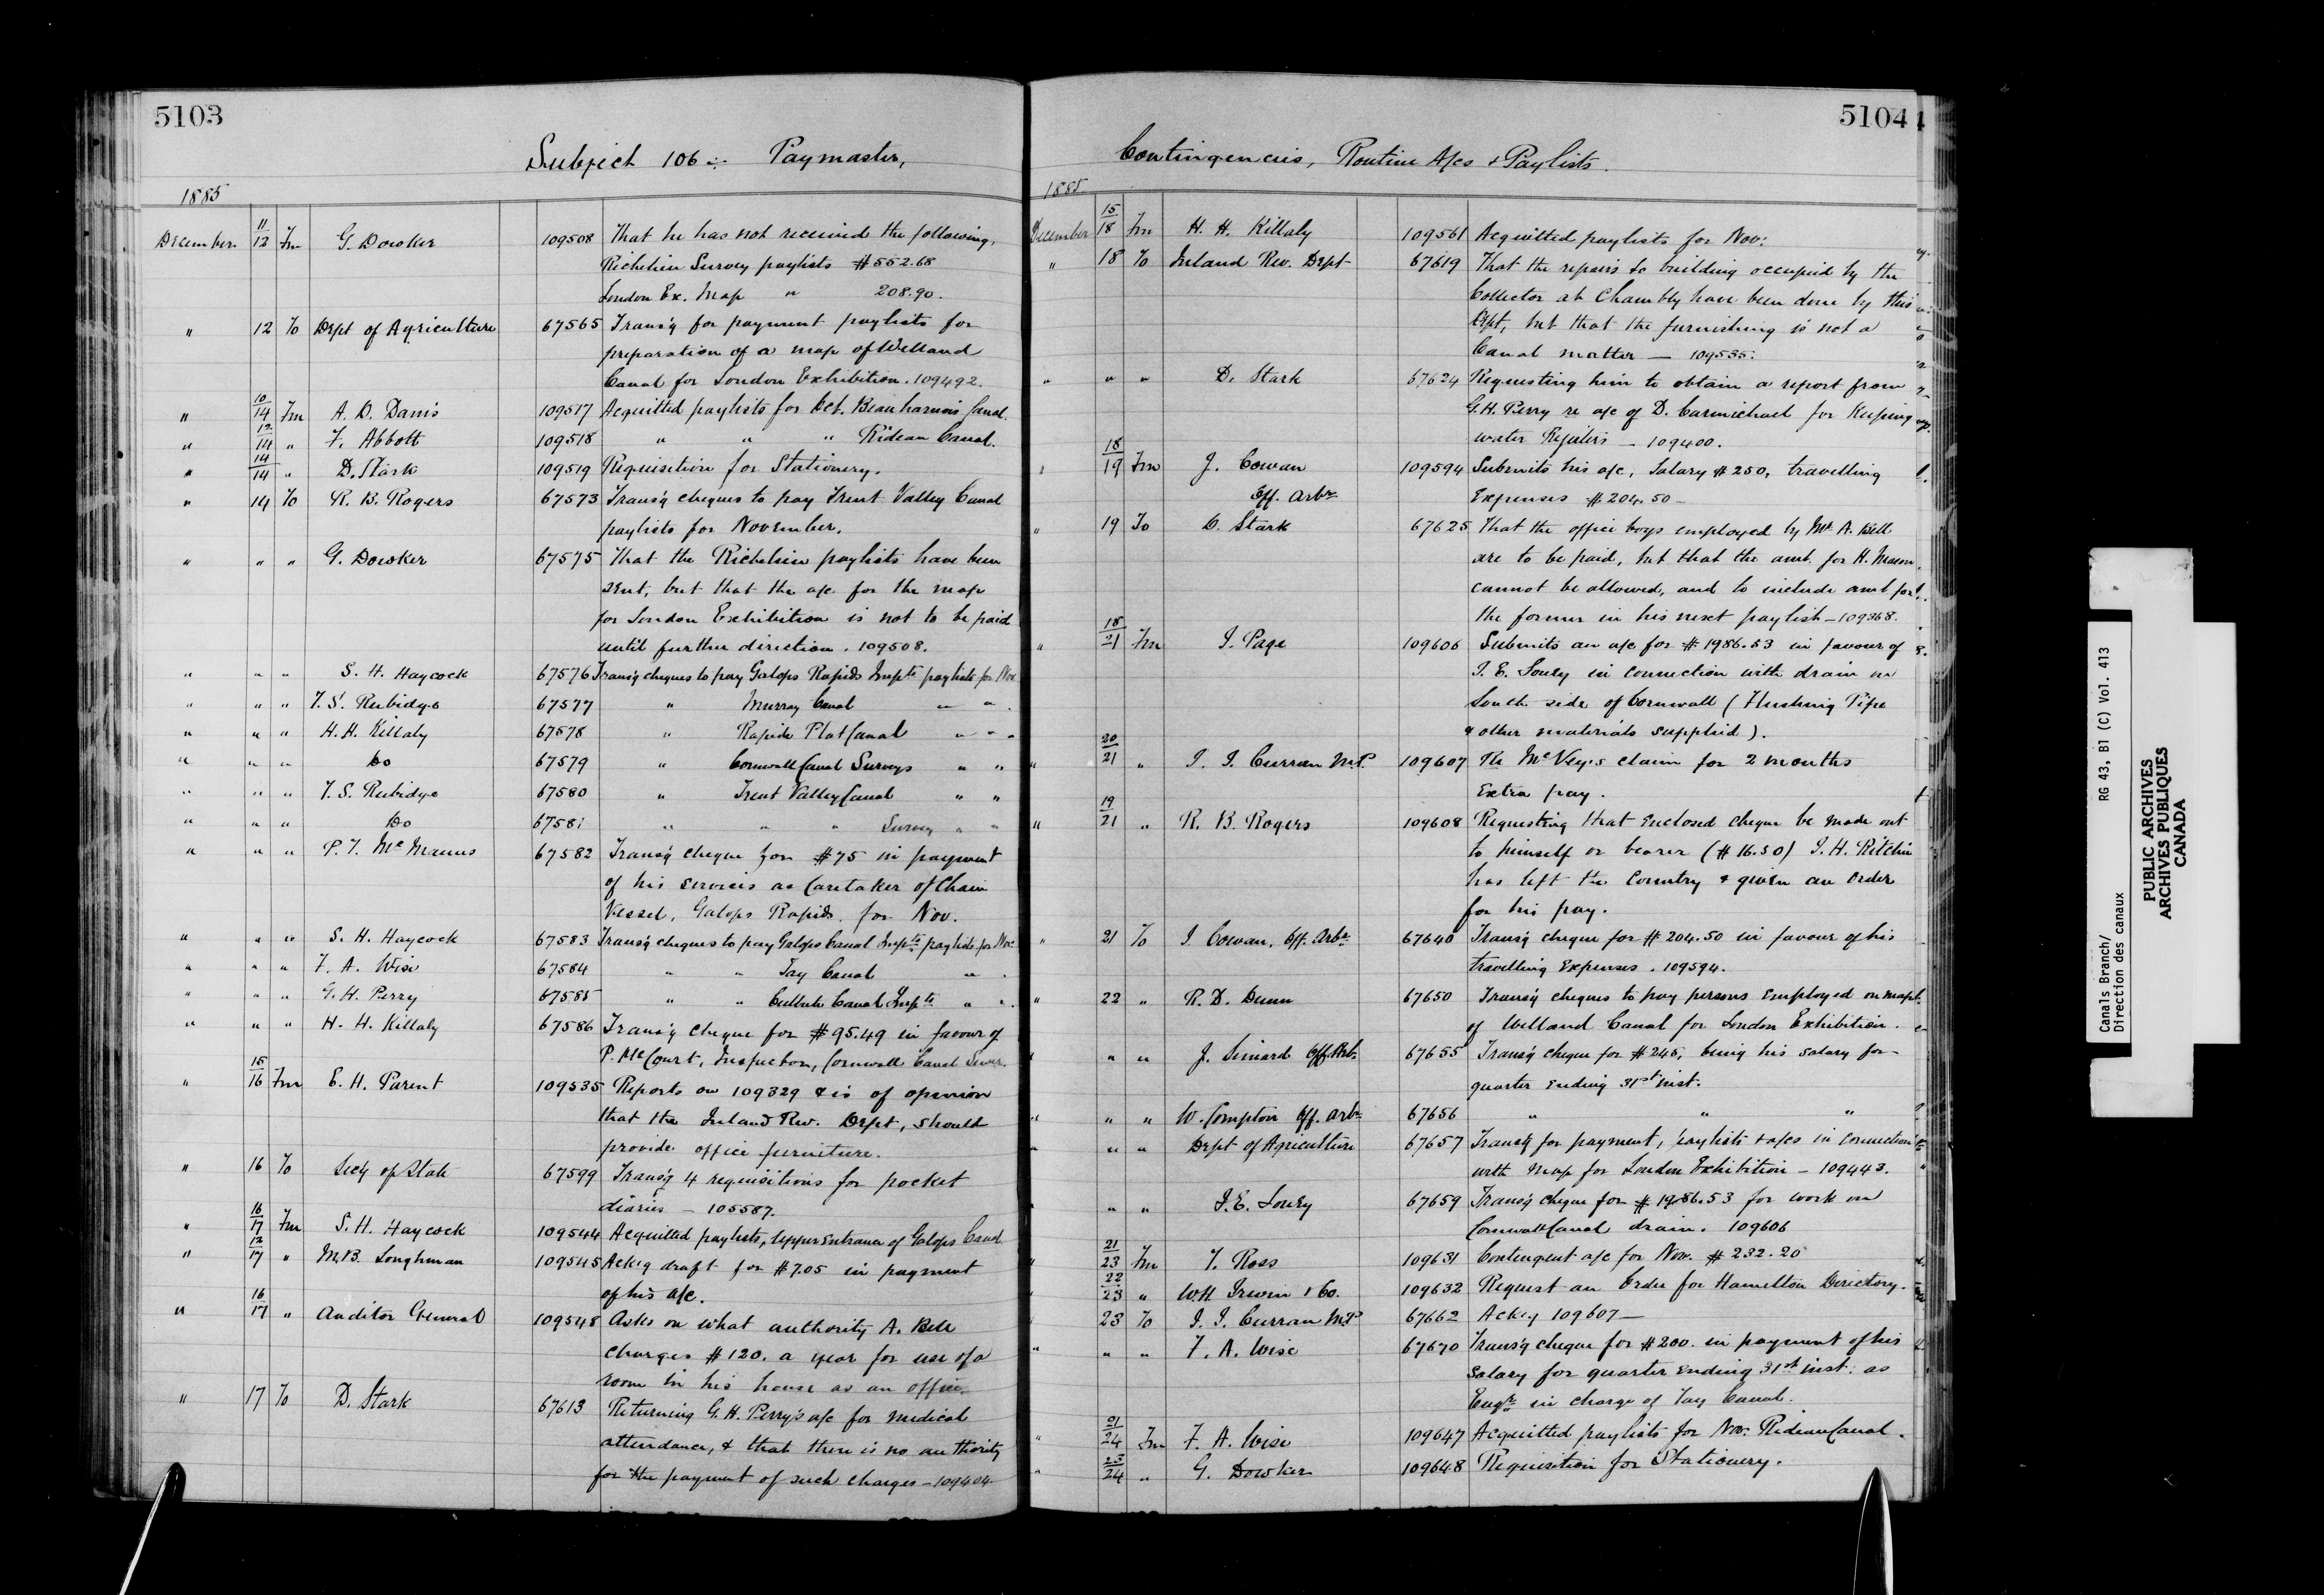 5103
Subject 106 :- Paymaster,
1885
December 11/12 Fm G. Dowker 109508 That he has not received the following,
Richelieu Survey paylists $552.68
London Ex. Map " 208.90.
" 12 To Dept of Agriculture 67565 Transg for payment paylists for
preparation of a map of Welland
Canal for London Exhibition. 109492.
" 10/14 Fm A. D. Danis 109517 Acquitted paylists for Oct. Beauharnois Canal.
" 12/14 " F. Abbott 109518 " " " Rideau Canal.
" 14/14 " D. Stark 109519 Requisition for Stationery.
" 14 To R. B. Rogers 67573 Transg cheques to pay Trent Valley Canal
paylists for November.
" " " G. Dowker 67575 That the Richelieu paylists have been
sent, but that the a/c for the map
for London Exhibition is not to be paid
until further direction. 109508.
" " " S. H. Haycock 67576 Transg cheques to pay Galops Rapids Impts paylists for Nov.
" " " T. S. Rubidge 67577 " Murray Canal " " .
" " " H. H. Killaly 67578 " Rapide Plat Canal " " "
" " " Do 67579 " Cornwall Canal Surveys " "
" " " T. S. Rubidge 67580 " Trent Valley Canal " "
" " " Do 67581 " " " Survey " "
" " " P. J. McManus 67582 Transg cheque for $75 in payment
of his services as Caretaker of Chain
Vessel, Galops Rapids. for Nov.
" " " S. H. Haycock 67583 Transg cheques to pay Galops Canal Impts paylists for Nov.
" " " F. A. Wise 67584 " " Tay Canal " .
" " " G. H. Perry 67585 " " Culbute Canal Impts " " .
" " " H. H. Killaly 67586 Transg cheque for $95.49 in favour of
P. McCourt, Inspector, Cornwall Canal Sewer.
" 15/16 Fm E. H. Parent 109535 Reports on 109329 & is of opinion
that the Inland Rev. Dept, should
provide office furniture.
" 16 To Secy of State 67599 Transg 4 requisitions for pocket
diaries - 105587.
" 16/17 Fm S. H. Haycock 109544 Acquitted paylists, Upper Entrance of Galops Canal
" 12/17 " M. B. Loughman 109545 Ackg draft for $7.05 in payment
of his a/c.
" 16/17 " Auditor General 109548 Asks on what authority A. Bell
charges $120. a year for use of a
room in his house as an office.
" 17 To D. Stark 67613 Returning G. H. Perry's a/c for medical
attendance, & that there is no authority
for the payment of such charges - 109404.
5104
Contingencies, Routine A/cs & Paylists.
1885
December 15/18 Fm H. H. Killaly 109561 Acquitted paylists for Nov:
" 18 To Inland Rev. Dept 67619 That the repairs to building occupied by the
Collector at Chambly have been done by this
Dept, but that the furnishing is not a
Canal matter — 109535.
" " " D. Stark 67624 Requesting him to obtain a report from
G. H. Perry re a/c of D. Carmichael for Keeping
water Registers - 109400.
" 18/19 Fm J. Cowan 109594 Submits his a/c, Salary $250, travelling
Off. Arbr Expenses $204.50 -
" 19 To D. Stark 67625 That the office boys employed by Mr A. Bell
are to be paid, but that the amt. for H. Mason
cannot be allowed, and to include amt for
the former in his next paylist - 109368.
" 18/21 Fm J. Page 109606 Submits an a/c for $1986.53 in favour of
J. E. Loucy in connection with drain on
South side of Cornwall (Flushing Pipe
& other materials supplied).
" 20/21 " J. J. Curran M.P. 109607 Re McVey's claim for 2 months
Extra pay.
" 19/21 " R. B. Rogers 109608 Requesting that Enclosed cheque be made out
to himself or bearer ($16.50) J. H. Ritchie
has left the Country & given an order
for his pay.
" 21 To J. Cowan, Off. Arbr 67640 Transg cheque for $204.50 in favour of his
travelling Expenses. 109594.
" 22 " R. D. Dunn 67650 Transg cheques to pay persons Employed on map
of Welland Canal for London Exhibition.
" " " J. Simard Off. Arb. 67655 Transg cheque for $245, being his salary for
quarter Ending 31st inst.
" " " W. Compton Off. Arbr 67656 " " "
" " " Dept of Agriculture 67657 Transg for payment, paylists & a/cs in connection
with Map for London Exhibition - 109443.
" " " J. E. Loucy 67659 Transg cheque for $1986.53 for work on
Cornwall Canal drain. 109606
" 21/23 Fm T. Ross 109631 Contingent a/c for Nov. $232.20
" 22/23 " W. H. Irwin & Co. 109632 Request an Order for Hamilton Directory.
" 23 To J. J. Curran M.P 67662 Ackg 109607 —
" " " F. A. Wise 67670 Transg cheque for $200. in payment of his
Salary for quarter Ending 31st inst. as
Engr in charge of Tay Canal.
" 21/24 Fm F. A. Wise 109647 Acquitted paylists for Nov. Rideau Canal.
" 23/24 " G. Dowker 109648 Requisition for Stationery.
Canals Branch/ RG 43, B1 (C) Vol. 413
Direction des canaux
PUBLIC ARCHIVES
ARCHIVES PUBLIQUES
CANADA